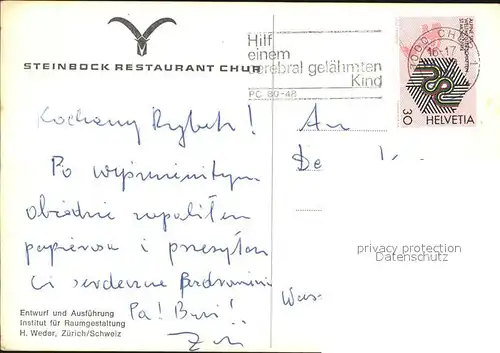 STEINBOCK RESTAURANT CHUR
Hilf
einem
cerebral gelähmten
Kind
PC 80-48
7000 CHUR 1
16.-17
30
HELVETIA
Kochany Rybek!
Po
obiedzie zapaliłem
papierosa i przesyłam
Ci serdeczne
Pa! Buzi!
An
De
privacy protection
Datenschutz
Entwurf und Ausführung
Institut für Raumgestaltung
H. Weder, Zürich/Schweiz